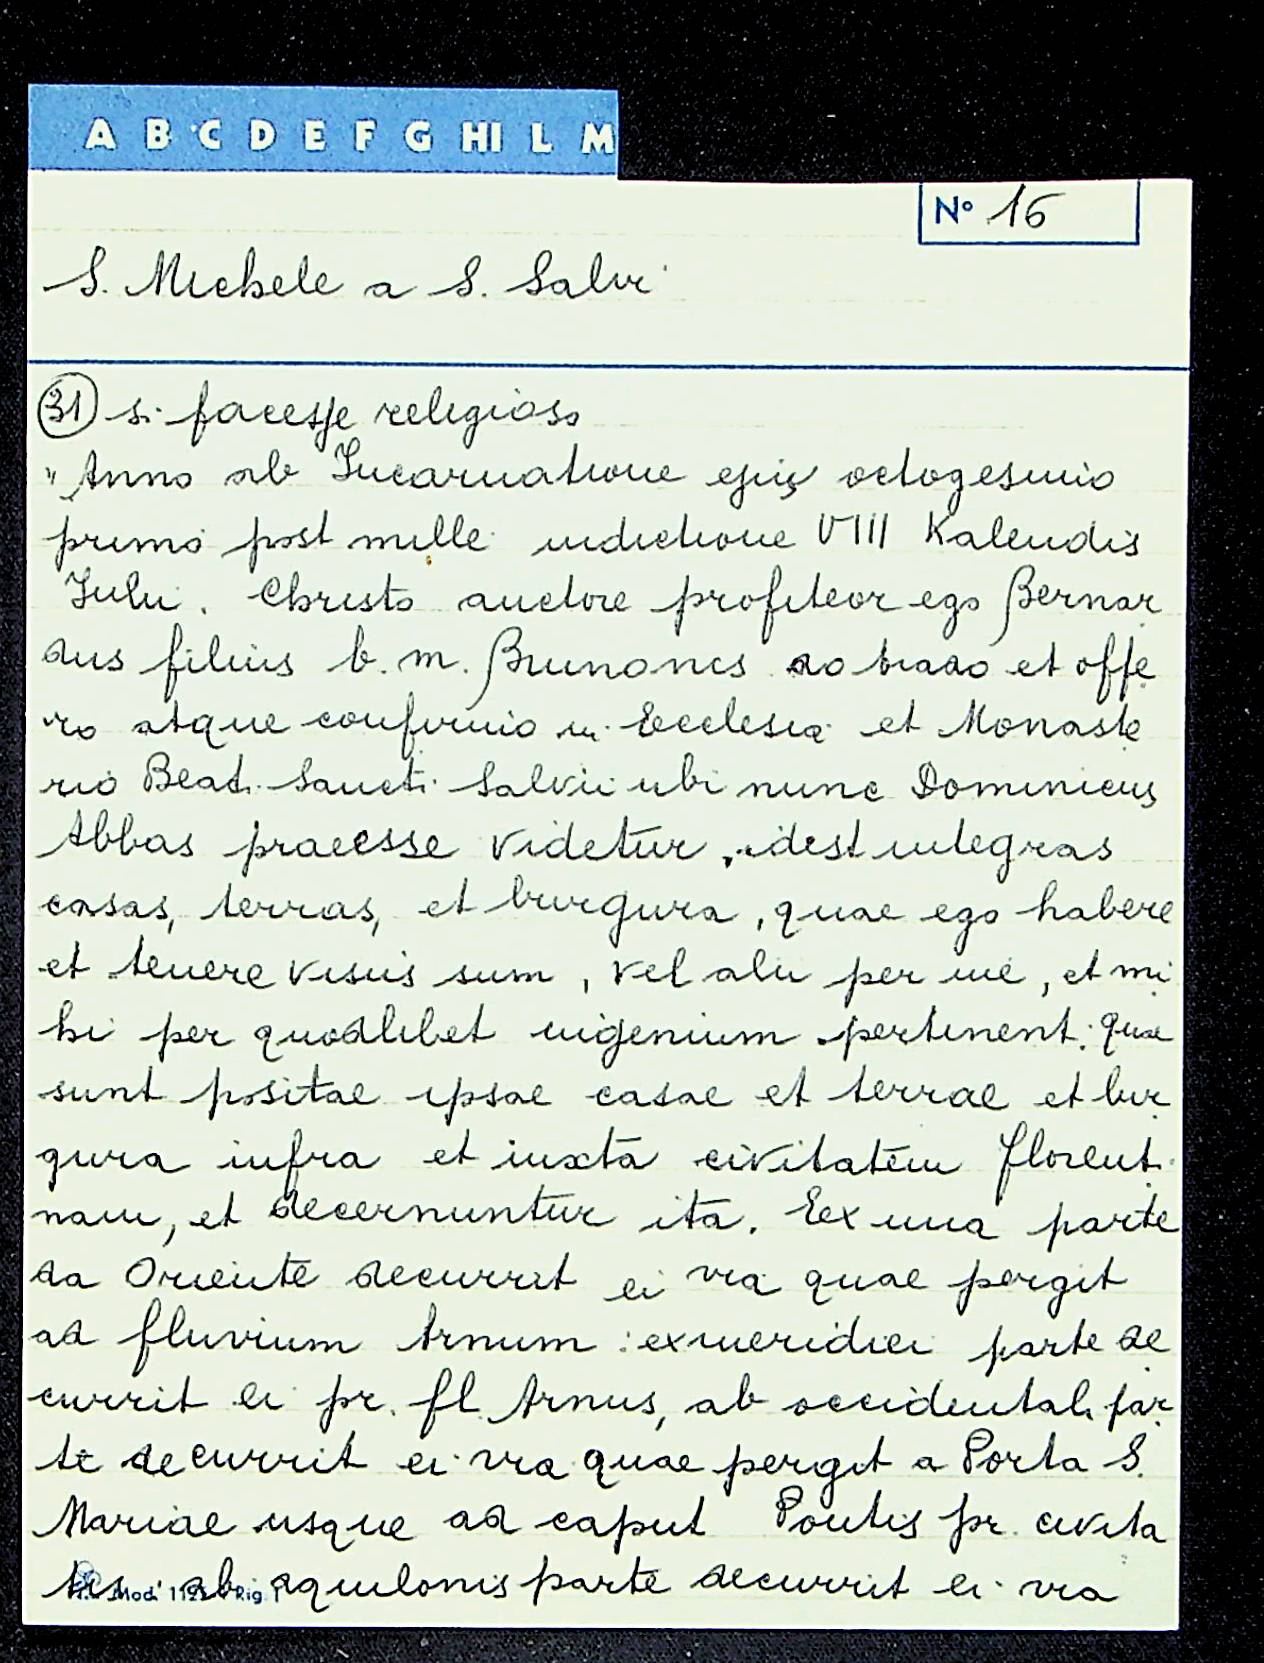 A B C D E F G HI L M
N° 16
S. Michele a S. Salvi
31 si facesse religioso
"Anno ab Incarnatione ejus octogesimo
primo post mille indictione VIII Kalendis
Julii. Christo auctore profiteor ego Bernar
dus filius b. m. Brunonis do trado et offe
ro atque confirmo in Ecclesia et Monaste
rio Beati Sancti Salvii ubi nunc Dominicus
Abbas praeesse videtur, idest integras
casas, terras, et burgura, quae ego habere
et tenere visus sum, vel alii per me, et mi
hi per quodlibet ingenium pertinent: quae
sunt positae ipsae casae et terrae et bur
gura infra et iuxta civitatem florenti
nam, et decernuntur ita. Eex una parte
da Oriente decurrit ei via quae pergit
ad fluvium Arnum: ex meridiei parte de
currit ei pr. fl. Arnus, ab occidentali par
te decurrit ei via quae pergit a Porta S.
Mariae usque ad caput Pontis pr. civita
tis: ab aquilonis parte decurrit ei via
Mod. 1193 Rig. 1